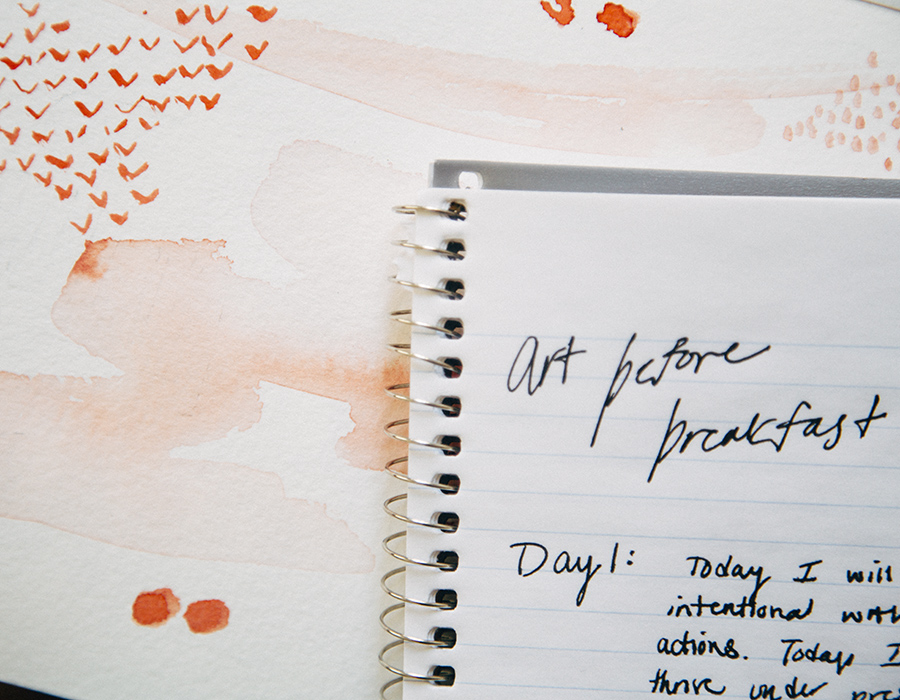 Art before
breakfast
Day 1: Today I will
intentional with
actions. Today I
thrive under